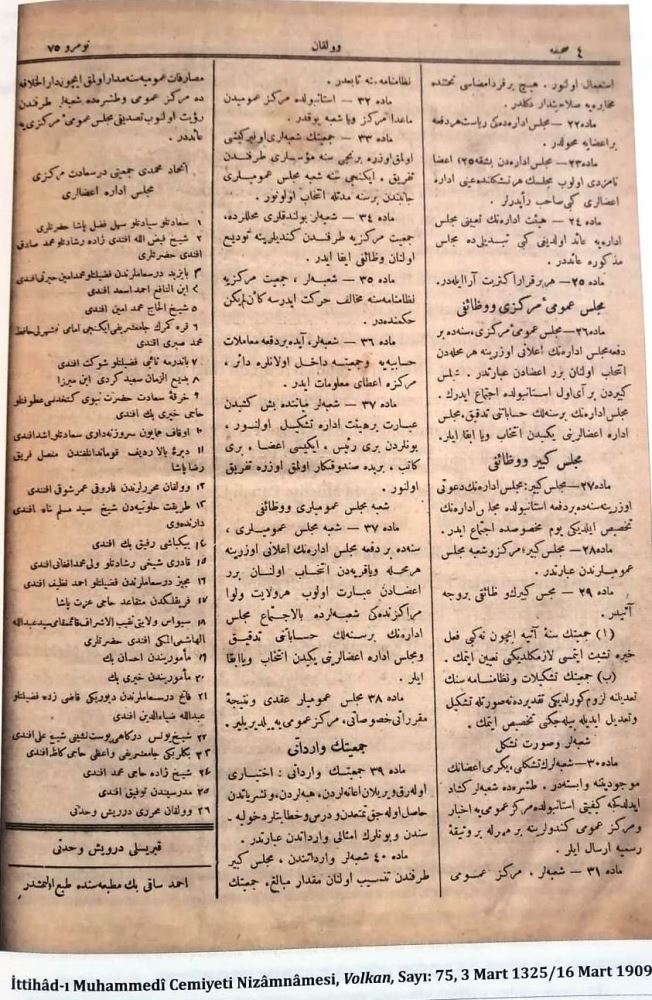 ٤ صحیفه
وولقان
نومرو ٧٥
استعمال اولنور . هیچ بر فرد امضاسی تحتنده
مخابره‌یه صلاحیتدار دکلدر .
ماده ٢٢ — مجلس اداره‌ده‌کی ریاست هر دفعه
بر اعضایه محولدر .
ماده ٢٣ — مجلس اداره‌دن بشقه (٢٥) اعضا
نامزدی اولوب مجلسك هر تشکلنده عینی اداره
اعضالری کبی صاحب رأیدرلر .
ماده ٢٤ — هیئت اداره‌نك تعیینی مجلس
اداره‌یه عائد اولدیغی کبی تبدیلی ده مجلس
مذکوره عائددر .
ماده ٢٥ — هر برقرار اکثریت آرا ایله‌در .
مجلس عمومی مرکزی و وظائفی
ماده ٢٦ — مجلس عمومی مرکزی ، سنه‌ده بر
دفعه مجلس اداره‌نك اعلانی اوزرینه هر محله‌دن
انتخاب اولنان برر اعضادن عبارتدر . مجلس
کبیردن بر آی اول استانبولده اجتماع ایدرك
مجلس اداره‌نك بر سنه‌لك حساباتنی تدقیق ، مجلس
اداره اعضالرینی یکیدن انتخاب ویا ابقا ایلر .
مجلس کبیر و وظائفی
ماده ٢٧ — مجلس کبیر ؛ مجلس اداره‌نك دعوتی
اوزرینه سنه‌ده بر دفعه استانبولده مجلس اداره‌نك
تخصیص ایلدیکی یوم مخصوصده اجتماع ایدر .
ماده ٢٨ — مجلس کبیر ؛ مرکز و شعبه مجلس
عمومیلرندن عبارتدر .
ماده ٢٩ — مجلس کبیرك وظائفی بروجه
آتیدر .
(١) جمعیتك سنهٔ آتیه ایچون نه کبی فعل
خیره تشبث ایتمسی لازمکلدیکنی تعیین ایتمك .
(ب) جمعیتك تشکیلات و نظامنامه سنك
تعدیلنه لزوم کورلدیکی تقدیرده نه صورتله تشکیل
و تعدیل ایدیله بیله‌جکنی تخصیص ایتمك .
شعبه‌لر و صورت تشکل
ماده ٣٠ — شعبه‌لرك تشکلی ، یکرمی اعضانك
موجودیتنه وابسته‌در . طشره‌ده شعبه‌لر کشاد
ایدلدکه کیفیتی استانبولده مرکز عمومی‌یه اخبار
و مرکز عمومی کندولرینه بر مهرله بر وثیقهٔ
رسمیه ارسال ایلر .
ماده ٣١ — شعبه‌لر ، مرکز عمومی
نظامنامه‌سنه تابعدر .
ماده ٣٢ — استانبولده مرکز عمومیدن
ماعدا مرکز ویا شعبه یوقدر .
ماده ٣٣ — جمعیتك شعبه‌لری اون بر کیشی
اولمق اوزره برنجی سنه مؤسسلری طرفندن
تفریق ، ایکنجی سنه شعبه مجلس عمومیلری
جانبندن بر سنه مدتله انتخاب اولنور .
ماده ٣٤ — شعبه‌لر بولندقلری محللرده ،
جمعیت مرکزیه طرفندن کندیلرینه تودیع
اولنان وظائفی ایفا ایدر .
ماده ٣٥ — شعبه‌لر ، جمعیت مرکزیه
نظامنامه‌سنه مخالف حرکت ایدرسه کأن لم یکن
حکمنده‌در .
ماده ٣٦ — شعبه‌لر ، آیده بر دفعه معاملات
حسابیه‌یه و جمعیته داخل اولانلره دائر ،
مرکزه اعطای معلومات ایدر .
ماده ٣٧ — شعبه‌لر مائنده بش کشیدن
عبارت بر هیئت اداره تشکیل اولنور ،
بونلردن بری رئیس ، ایکیسی اعضا ، بری
کاتب ، بریده صندوقکار اولمق اوزره تفریق
اولنور .
شعبه مجلس عمومیلری و وظائفی
ماده ٣٧ — شعبه مجلس عمومیلری ،
سنه‌ده بر دفعه مجلس اداره‌نك اعلانی اوزرینه
هر محله ویا قریه‌دن انتخاب اولنان برر
اعضادن عبارت اولوب هر ولایت ولوا
مراکزنده‌کی شعبه‌لرده بالاجتماع مجلس
اداره‌نك بر سنه‌لك حساباتنی تدقیق
و مجلس اداره اعضالرینی یکیدن انتخاب ویا ابقا
ایلر .
ماده ٣٨ مجلس عمومیلر عقدی و نتیجهٔ
مقرراتی خصوصاتی ، مرکز عمومی‌یه بلدیریلیر .
جمعیتك وارداتی
ماده ٣٩ جمعیتك وارداتی : اختیاری
اوله‌رق ویریلان اعانه‌لردن ، هبه‌لردن ، و نشریاتدن
حاصل اوله‌جق تمتعدن و درس و خطابه‌لر دخولیه-
سندن و بونلرك امثالی وارداتدن عبارتدر .
ماده ٤٠ شعبه‌لر وارداتندن ، مجلس کبیر
طرفندن تنسیب اولنان مقدار مبالغ ، جمعیتك
مصارفات عمومیه سنه مدار اولمق ایچون دار الخلافه
ده مرکز عمومی و طشره‌ده شعبه‌لر طرفندن
رؤیت اولنوب تصدیقی مجلس عمومی مرکزی‌یه
عائددر .
اتحاد محمدی جمعیتی در سعادت مرکزی
مجلس اداره اعضالری
١ سعادتلو سیادتلو سهیل فضل پاشا حضرتلری
٢ شیخ فیض الله افندی زاده رشادتلو محمد صادق
افندی حضرتلری
٣ بایزید درسعاملرندن فضیلتلو محمد امین خیرتی افندی
٤ ابن النافع احمد اسعد افندی
٥ شیخ الحاج محمد امین افندی
٦ قره کوك جامع شریفی ایکنجی امامی نوشهرلی حافظ
محمد صبری افندی
٧ باندرمه نائبی فضیلتلو شوکت افندی
٨ بدیع الزمان سعید کردی ابن میرزا
٩ خرقهٔ سعادت حضرت نبوی کتخداسی عطوفتلو
حاجی خیری بك افندی
١٠ اوقاف همایون سر وزنه‌داری سعادتلو اشد افندی
١١ دیرهٔ بالا ردیف قومانداتلغندن منفصل فریق
رضا پاشا
١٢ وولقان محررلرندن فاروقی عمر شوقی افندی
١٣ طریقت خلوتیه‌دن شیخ سید مسلم افندی
دارنده‌وی
١٤ بیکباشی رفیق بك افندی
١٥ قادری شیخی رشادتلو ولی محمد افغانی افندی
١٦ مجیز درسعاملرندن فضیلتلو احمد نظیف افندی
١٧ فریقلکدن متقاعد حاجی عزت پاشا
١٨ سیواس ولایتی نقیب الاشراف قائمقامی سید عبدالله
الهاشمی المکی افندی حضرتلری
١٩ مأموریندن احسان بك
٢٠ مأموریندن خیری بك
٢١ فاتح درسعاملرندن دیوریکی قاضی زاده فضیلتلو
عبدالله ضیاءالدین افندی
٢٢ شیخ یونس درکاهی پوست نشینی شیخ علی افندی
٢٣ بکلربکی جامع شریفی واعظی حاجی کاظم افندی
٢٤ شیخ زاده حاجی محمد افندی
٢٥ مدرسیندن توفیق افندی
٢٦ وولقان محرری درویش وحدتی
قبریسلی درویش وحدتی
احمد ساقی بك مطبعه‌سنده طبع اولنمشدر
İttihâd-ı Muhammedî Cemiyeti Nizâmnâmesi, Volkan, Sayı: 75, 3 Mart 1325/16 Mart 1909